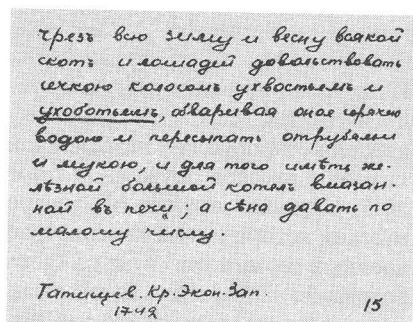 чрезъ всю зиму и весну всякой
скотъ и лошадей довольствовать
сечкою колосомъ ухвостьемъ и
ухоботьемъ, обваривая оное горячею
водою и пересыпать отрубями
и мукою, и для того имѣть же-
лѣзной большой котелъ вмазан-
ной въ печи, а сѣна давать по
малому числу.
Татищев. Кр. Экон. Зап.
1742
15